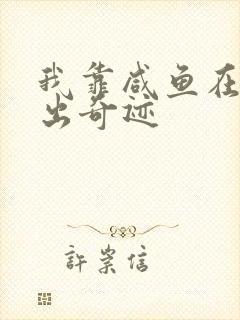 我靠咸鱼在
出奇迹
許崇信